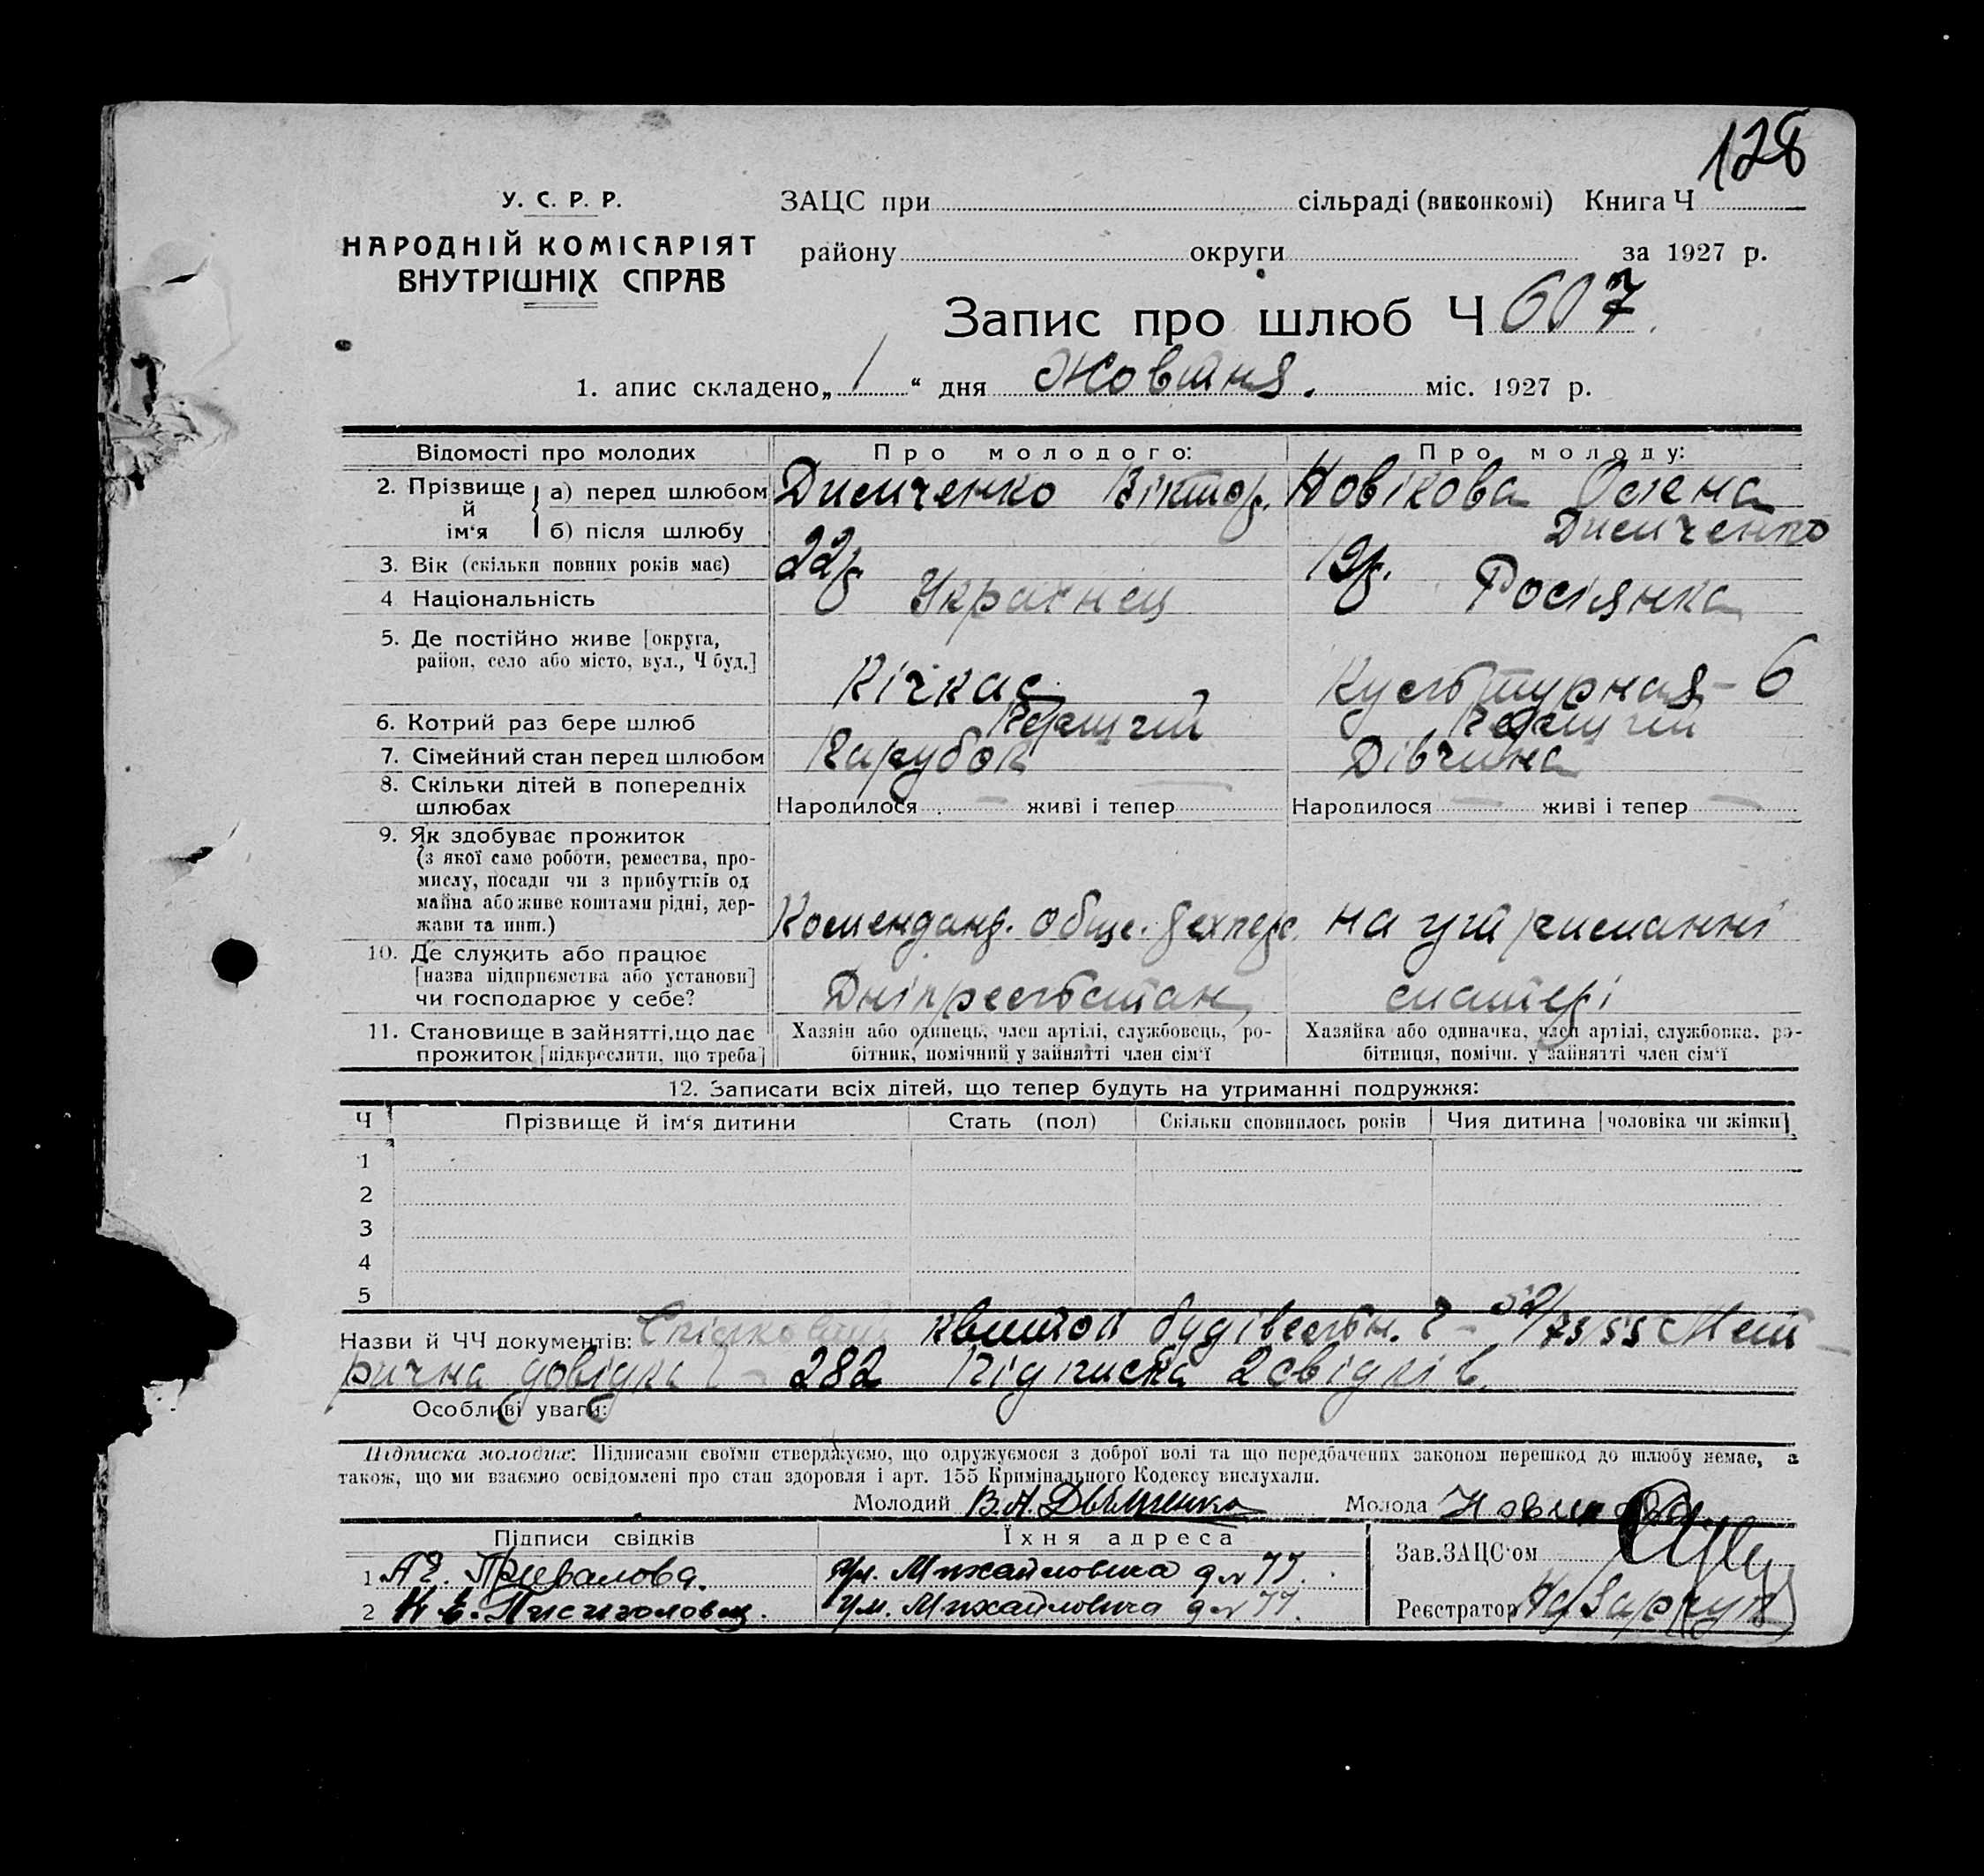 128
У. С. Р. Р.
НАРОДНІЙ КОМІСАРІЯТ
ВНУТРІШНІХ СПРАВ
ЗАЦС при сільраді (виконкомі) Книга Ч
району округи за 1927 р.
Запис про шлюб Ч 607
1. апис складено „ 1 “ дня Жовтня. міс. 1927 р.
Відомості про молодих Про молодого: Про молоду:
2. Прізвище й ім'я а) перед шлюбом Димченко Віктор. Новікова Олена
б) після шлюбу Димченко
3. Вік (скільки повних років має) 22р 19р.
4 Національність Українец Росіянка
5. Де постійно живе [округа,
район, село або місто, вул., Ч буд.] Кічкас Культурная - 6
6. Котрий раз бере шлюб Перщий Перщий
7. Сімейний стан перед шлюбом Парубок Дівчина
8. Скільки дітей в попередніх
шлюбах Народилося — живі і тепер — Народилося — живі і тепер —
9. Як здобуває прожиток
(з якої саме роботи, ремества, про-
мислу, посади чи з прибутків од
майна або живе коштами рідні, дер-
жави та инш.) на утриманні
10. Де служить або працює
[назва підприємства або установи]
чи господарює у себе? матері
11. Становище в зайнятті, що дає
прожиток [підкреслити, що треба]
Хазяїн або одинець, член артілі, службовець, ро-
бітник, помічний у зайнятті член сім'ї
Хазяйка або одиначка, член артілі, службовка, ро-
бітниця, помічн. у зайнятті член сім'ї
12. Записати всіх дітей, що тепер будуть на утриманні подружжя:
Ч Прізвище й ім'я дитини Стать (пол) Скільки сповнилось років Чия дитина [чоловіка чи жінки]
1
2
3
4
5
Назви й ЧЧ документів: Спілковий квиток будівельн. Мет
рична довідка 282 Підписка 2 свідків.
Особливі уваги:
Підписка молодих: Підписами своїми стверджуємо, що одружуємося з доброї волі та що передбачених законом перешкод до шлюбу немає, а
також, що ми взаємно освідомлені про стан здоровля і арт. 155 Кримінального Кодексу вислухали.
Молодий В.А. Молода Новикова
Підписи свідків Їхня адреса
1 Привалова. ул. Михайловича д№ 77.
2 ул. Михайловича д№ 77.
Зав.ЗАЦС'ом
Реєстратор